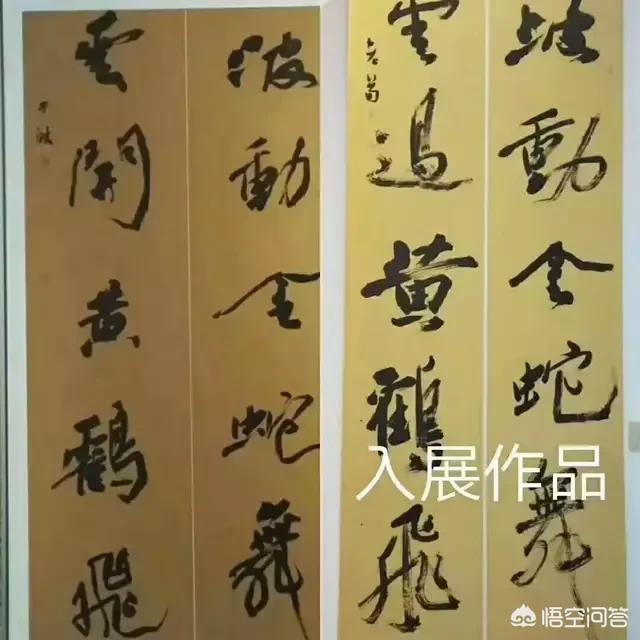 波動金蛇舞
雲開黄鶴飛
波動金蛇舞
雲過黄鶴飛
入展作品
悟空问答